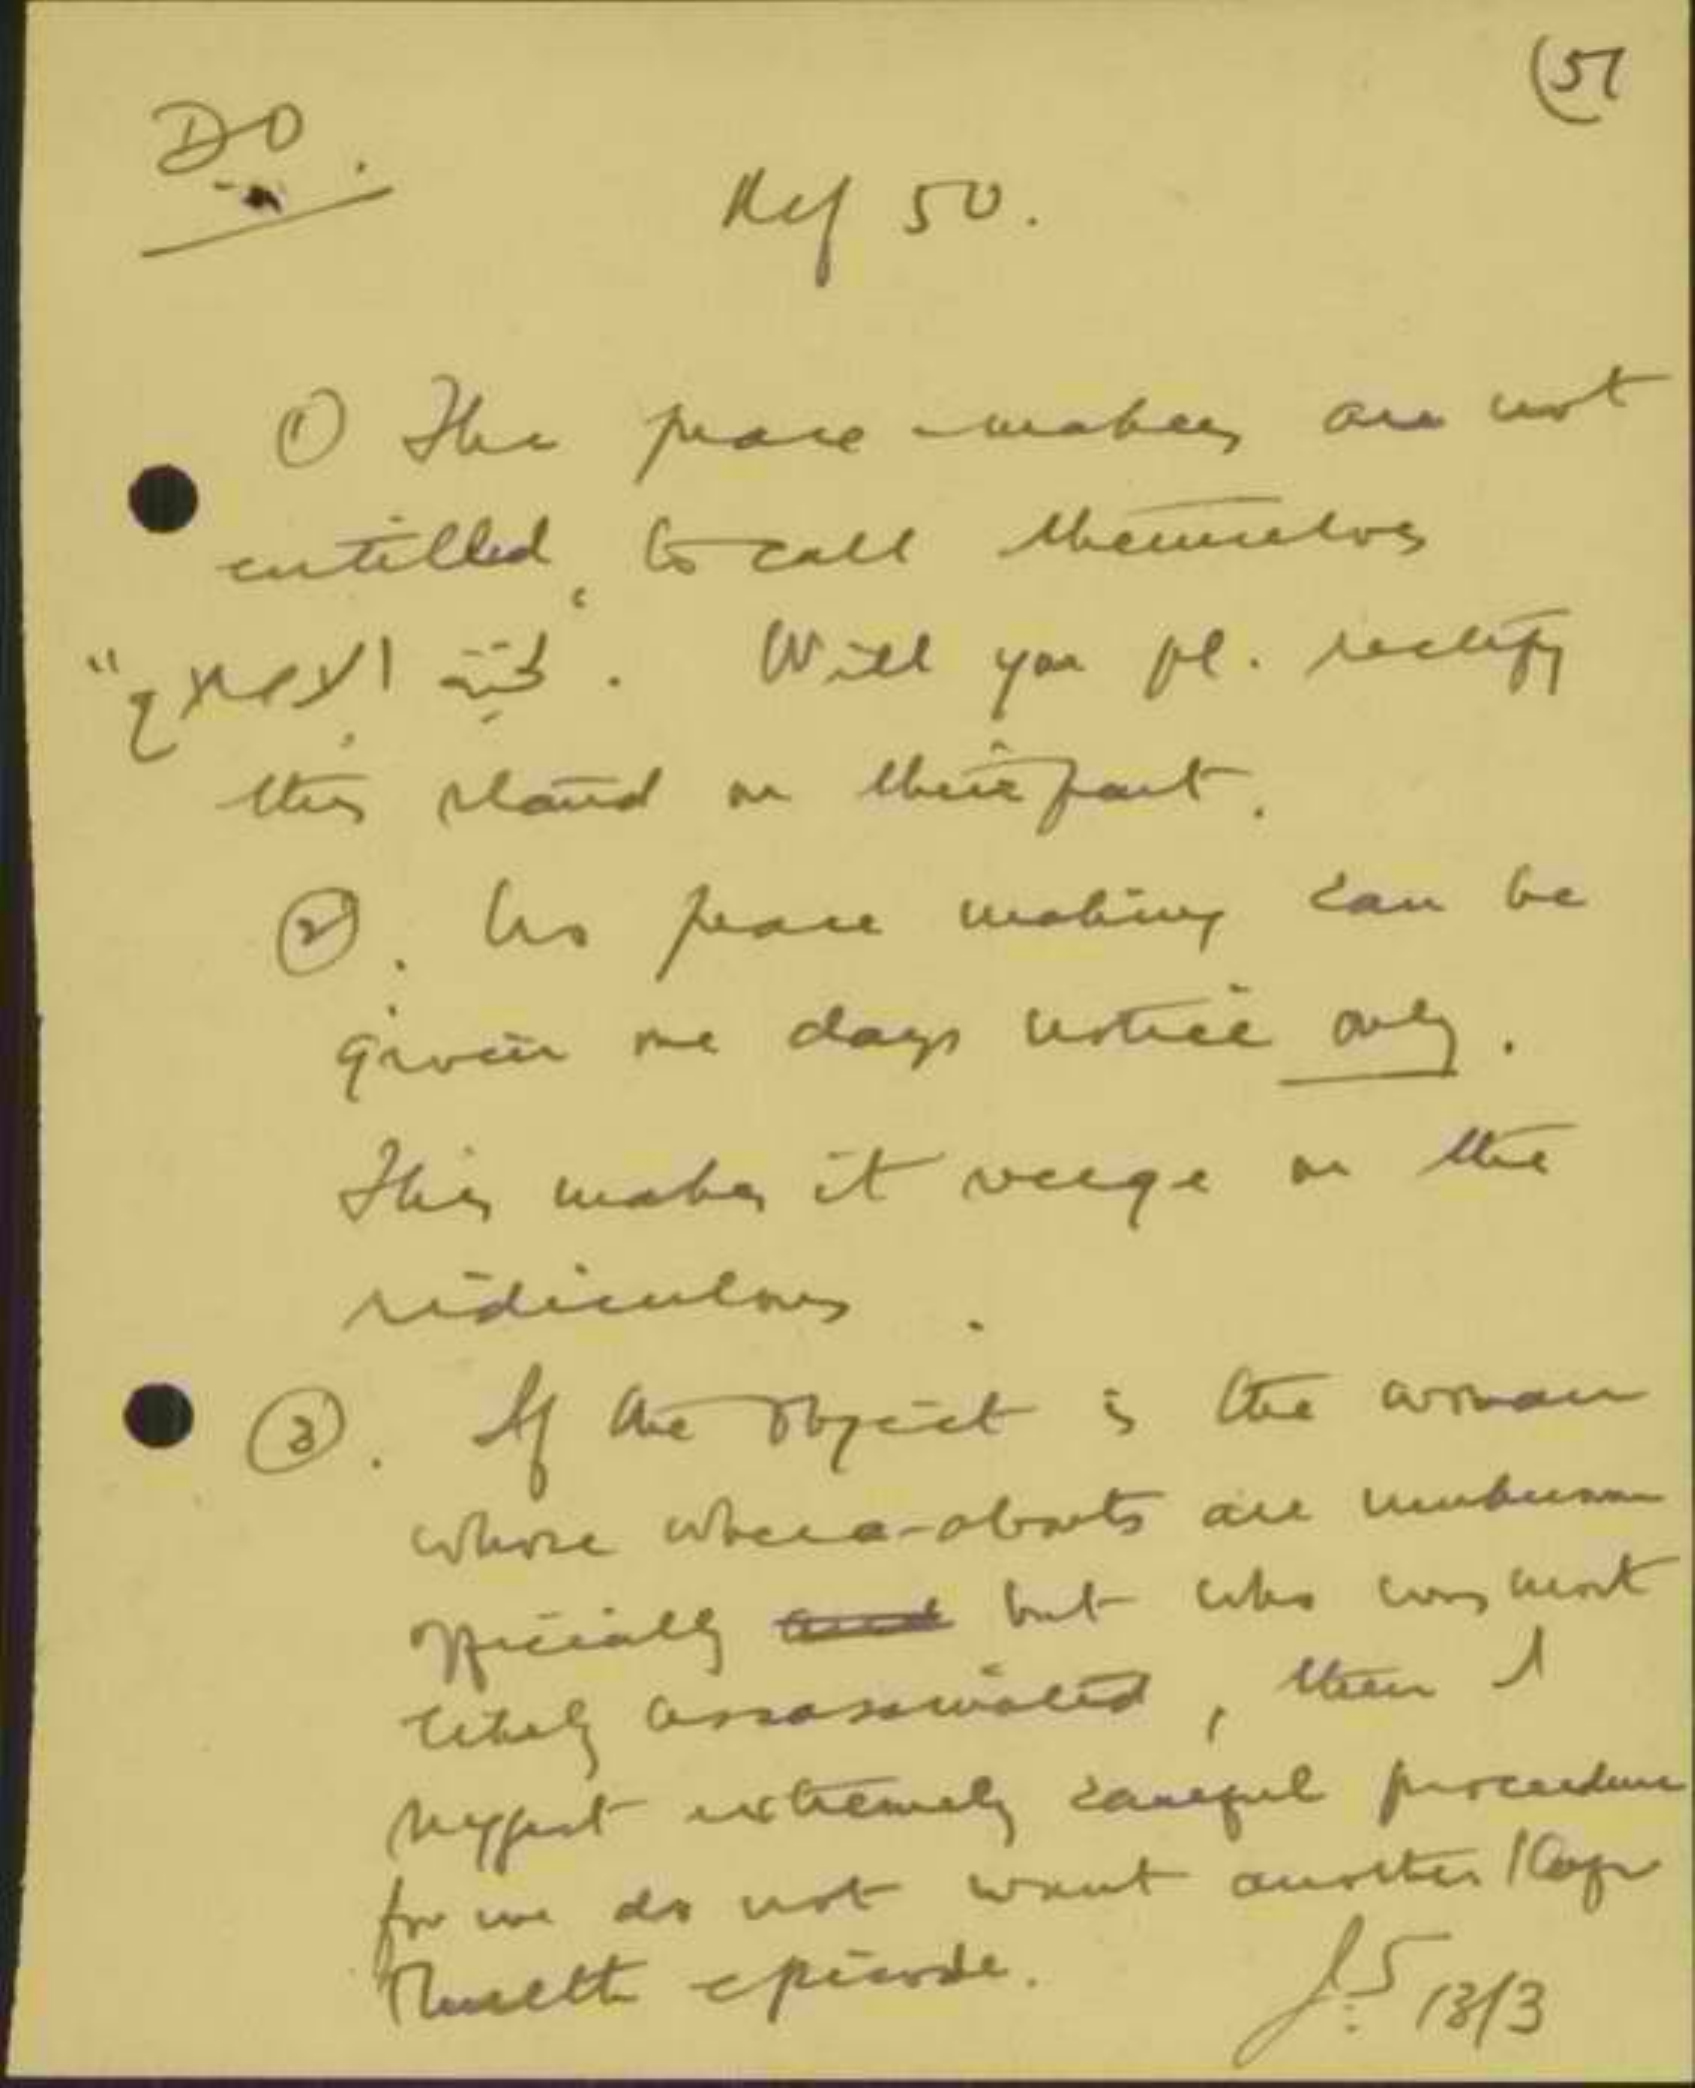 51
DO
Ref 50.
① The peace-makers are not
entitled to call themselves
"لجنة الاصلاح". Will you pl. rectify
this stand on their part.
②. No peace making can be
given one days notice only.
This makes it verge on the
ridiculous.
③. If the object is the woman
whose where-abouts are unknown
officially but who was most
likely assassinated, then I
suggest extremely careful procedure
for we do not want another
episode.
J.S 13/3